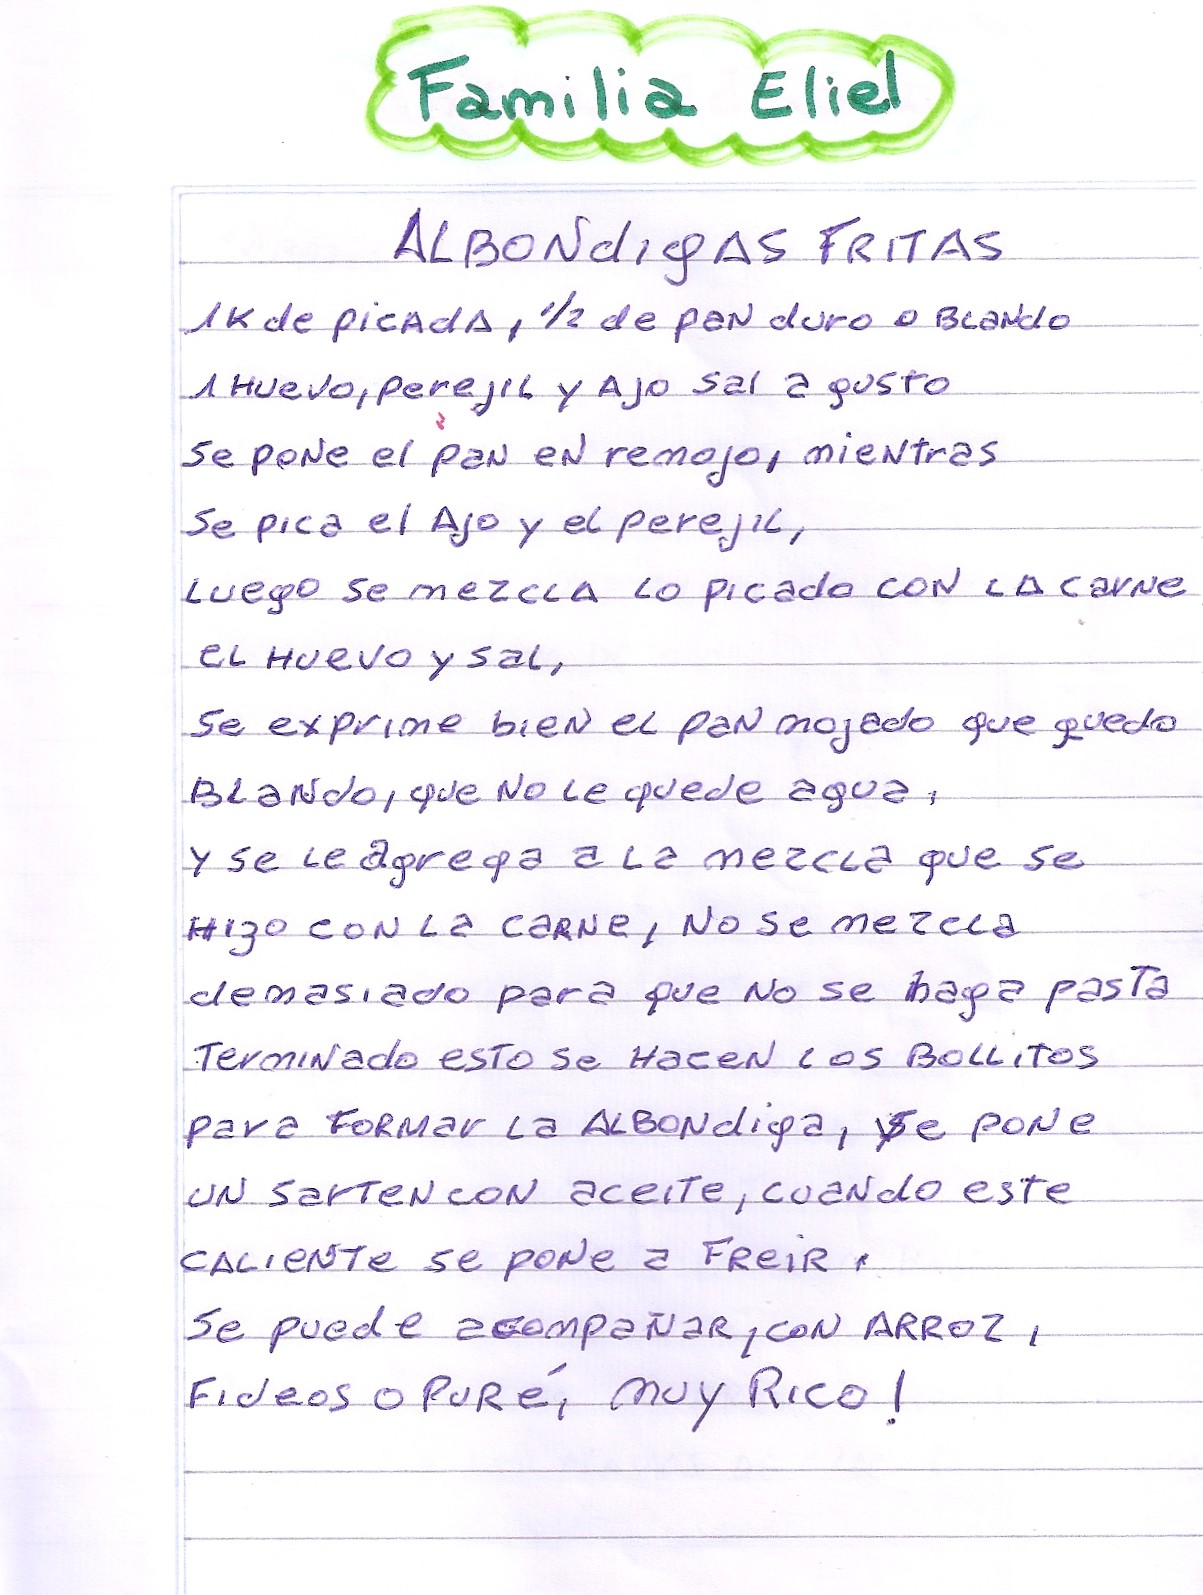 Familia Eliel
ALBONdigAS FRITAS
1K de picAdA, 1/2 de pAN duro o BLANdo
1 Huevo, perejIL y AJo sal a gusto
Se poNe el pAN eN remojo, mieNtras
Se pica el AJo y eL perejIL,
Luego se mezcLA Lo picado coN LA carNe
eL Huevo y sal,
Se exprime bieN eL pAN mojado que quedo
BLaNdo, que No Le quede agua,
y se Le agrega a La mezcLa que se
Hizo coN La CARNe, No se mezcLa
demasiado para que No se haga pasTa
TermiNado esTo se HaceN Los BoLLiTos
para FoRMar La ALBONdiga, se poNe
uN sarTeN coN aceiTe, cuaNdo este
CALieNTe se poNe a FReiR,
Se puede acompañaR, coN ARROZ,
Fideos o PuRé, muy Rico!